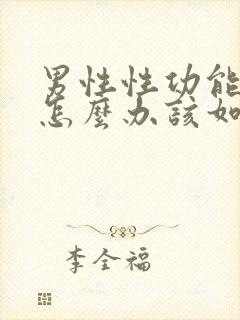 男性性功能
怎麼办該如
李全福